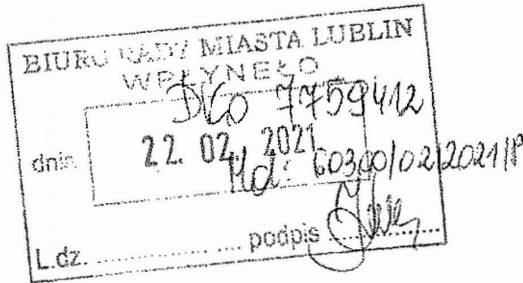 BIURO RADY MIASTA LUBLIN
WPŁYNĘŁO
DCo 7759412
dnia 22. 02. 2021
Md: 60300/02/2021/P
L.dz. .................. podpis ..................